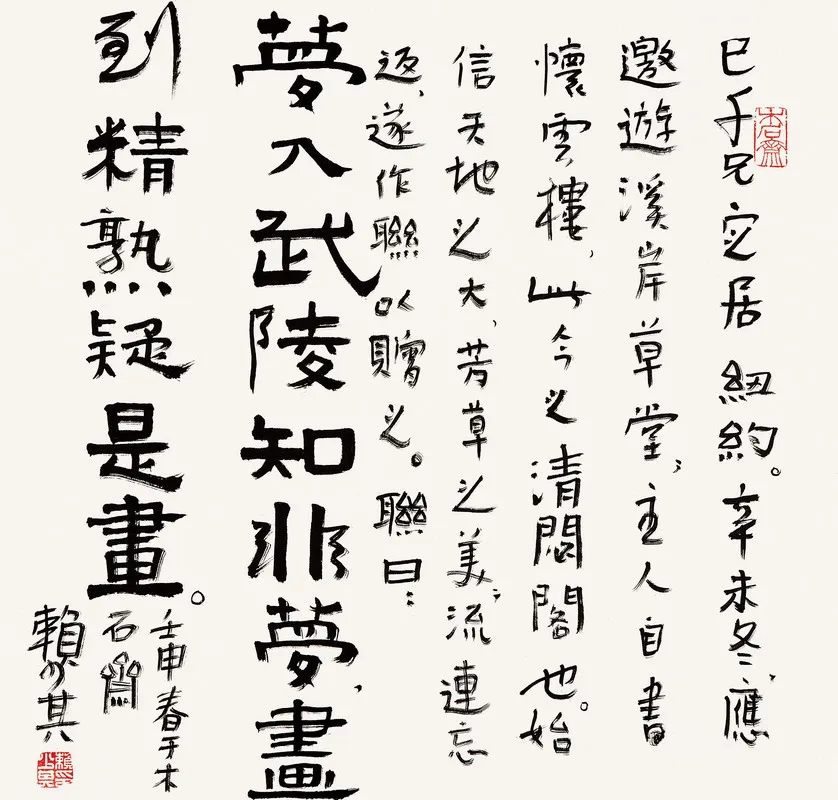 巳千兄定居紐約。辛未冬,應
邀遊溪岸草堂;主人自書
懷雲樓,此今之清閟閣也。始
信天地之大,芳草之美;流連忘
返,遂作聯以贈之。聯曰:
夢入武陵知非夢,畫
到精熟疑是畫。
壬申春于木
石齋
賴少其
木石齋